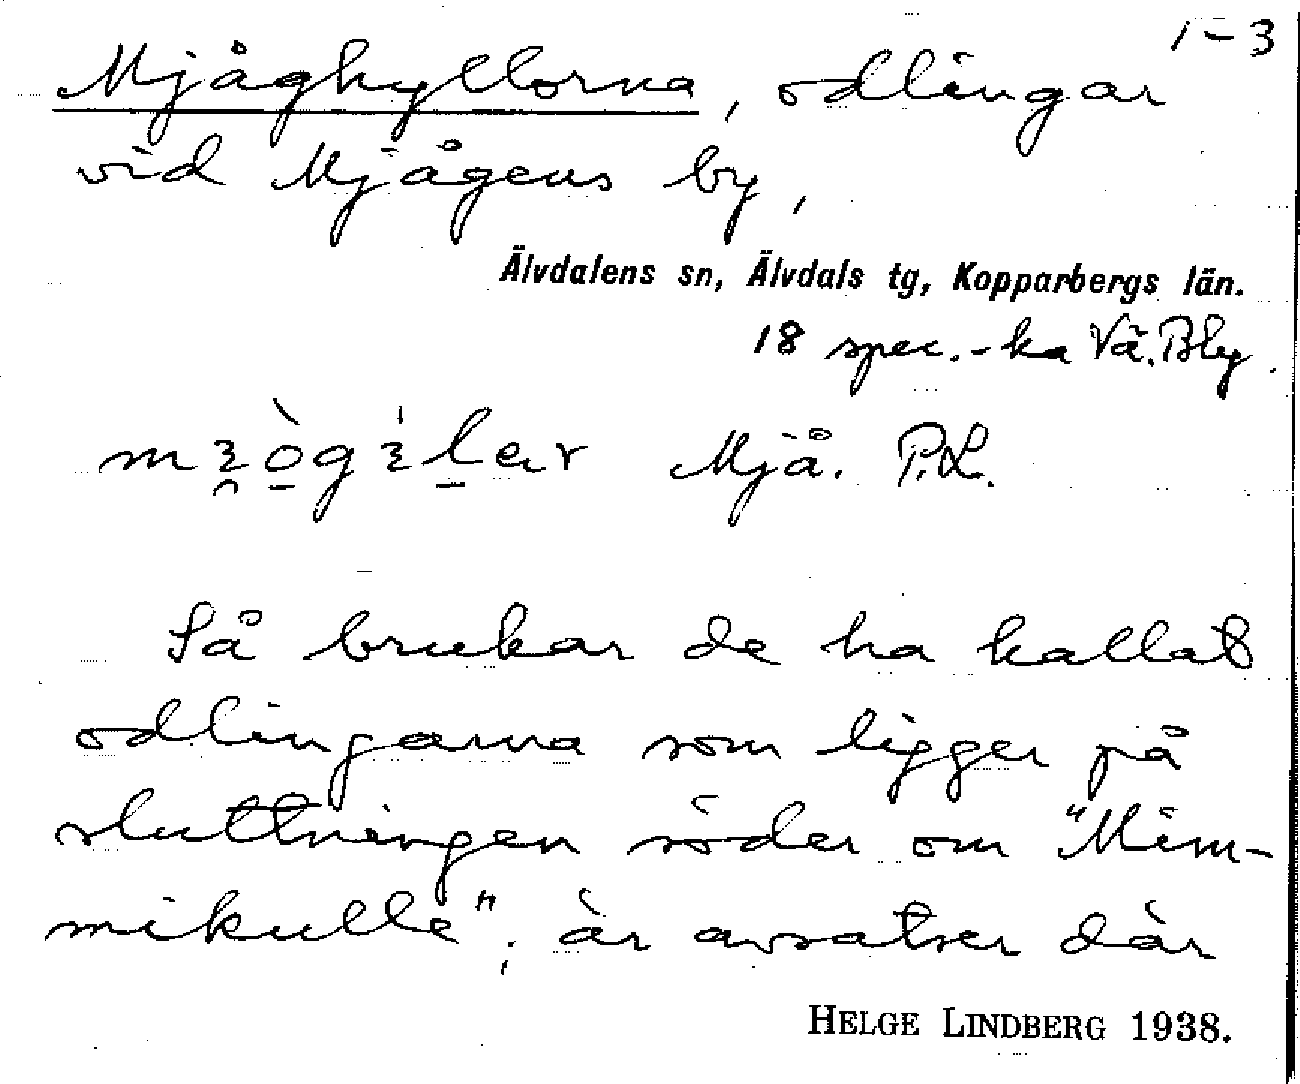 1-3
Mjåghyllorna, odlingar
vid Mjågens by,
Älvdalens sn, Älvdals tg, Kopparbergs län.
18 spec.-ka Vä. Bly.
Mjå. P.L.
Så brukar de ha kallat
odlingarna som ligger på
sluttningen söder om "Mim-
mikulle"; är avsatser där
HELGE LINDBERG 1938.